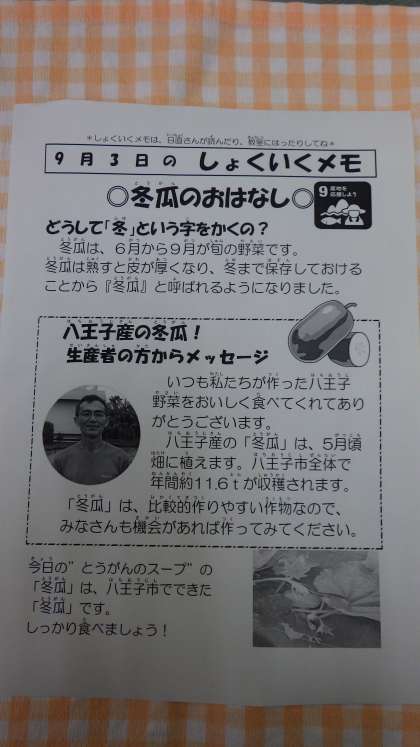 ＊しょくいくメモは、日直さんが読んだり、教室にはったりしてね＊
9月3日の しょくいくメモ
◎冬瓜のおはなし◎
9 産地を
応援しよう
どうして「冬」という字をかくの？
冬瓜は、6月から9月が旬の野菜です。
冬瓜は熟すと皮が厚くなり、冬まで保存しておける
ことから『冬瓜』と呼ばれるようになりました。
八王子産の冬瓜！
生産者の方からメッセージ
いつも私たちが作った八王子
野菜をおいしく食べてくれてあり
がとうございます。
八王子産の「冬瓜」は、5月頃
畑に植えます。八王子市全体で
年間約11.6ｔが収穫されます。
「冬瓜」は、比較的作りやすい作物なので、
みなさんも機会があれば作ってみてください。
今日の”とうがんのスープ”の
「冬瓜」は、八王子市でできた
「冬瓜」です。
しっかり食べましょう！